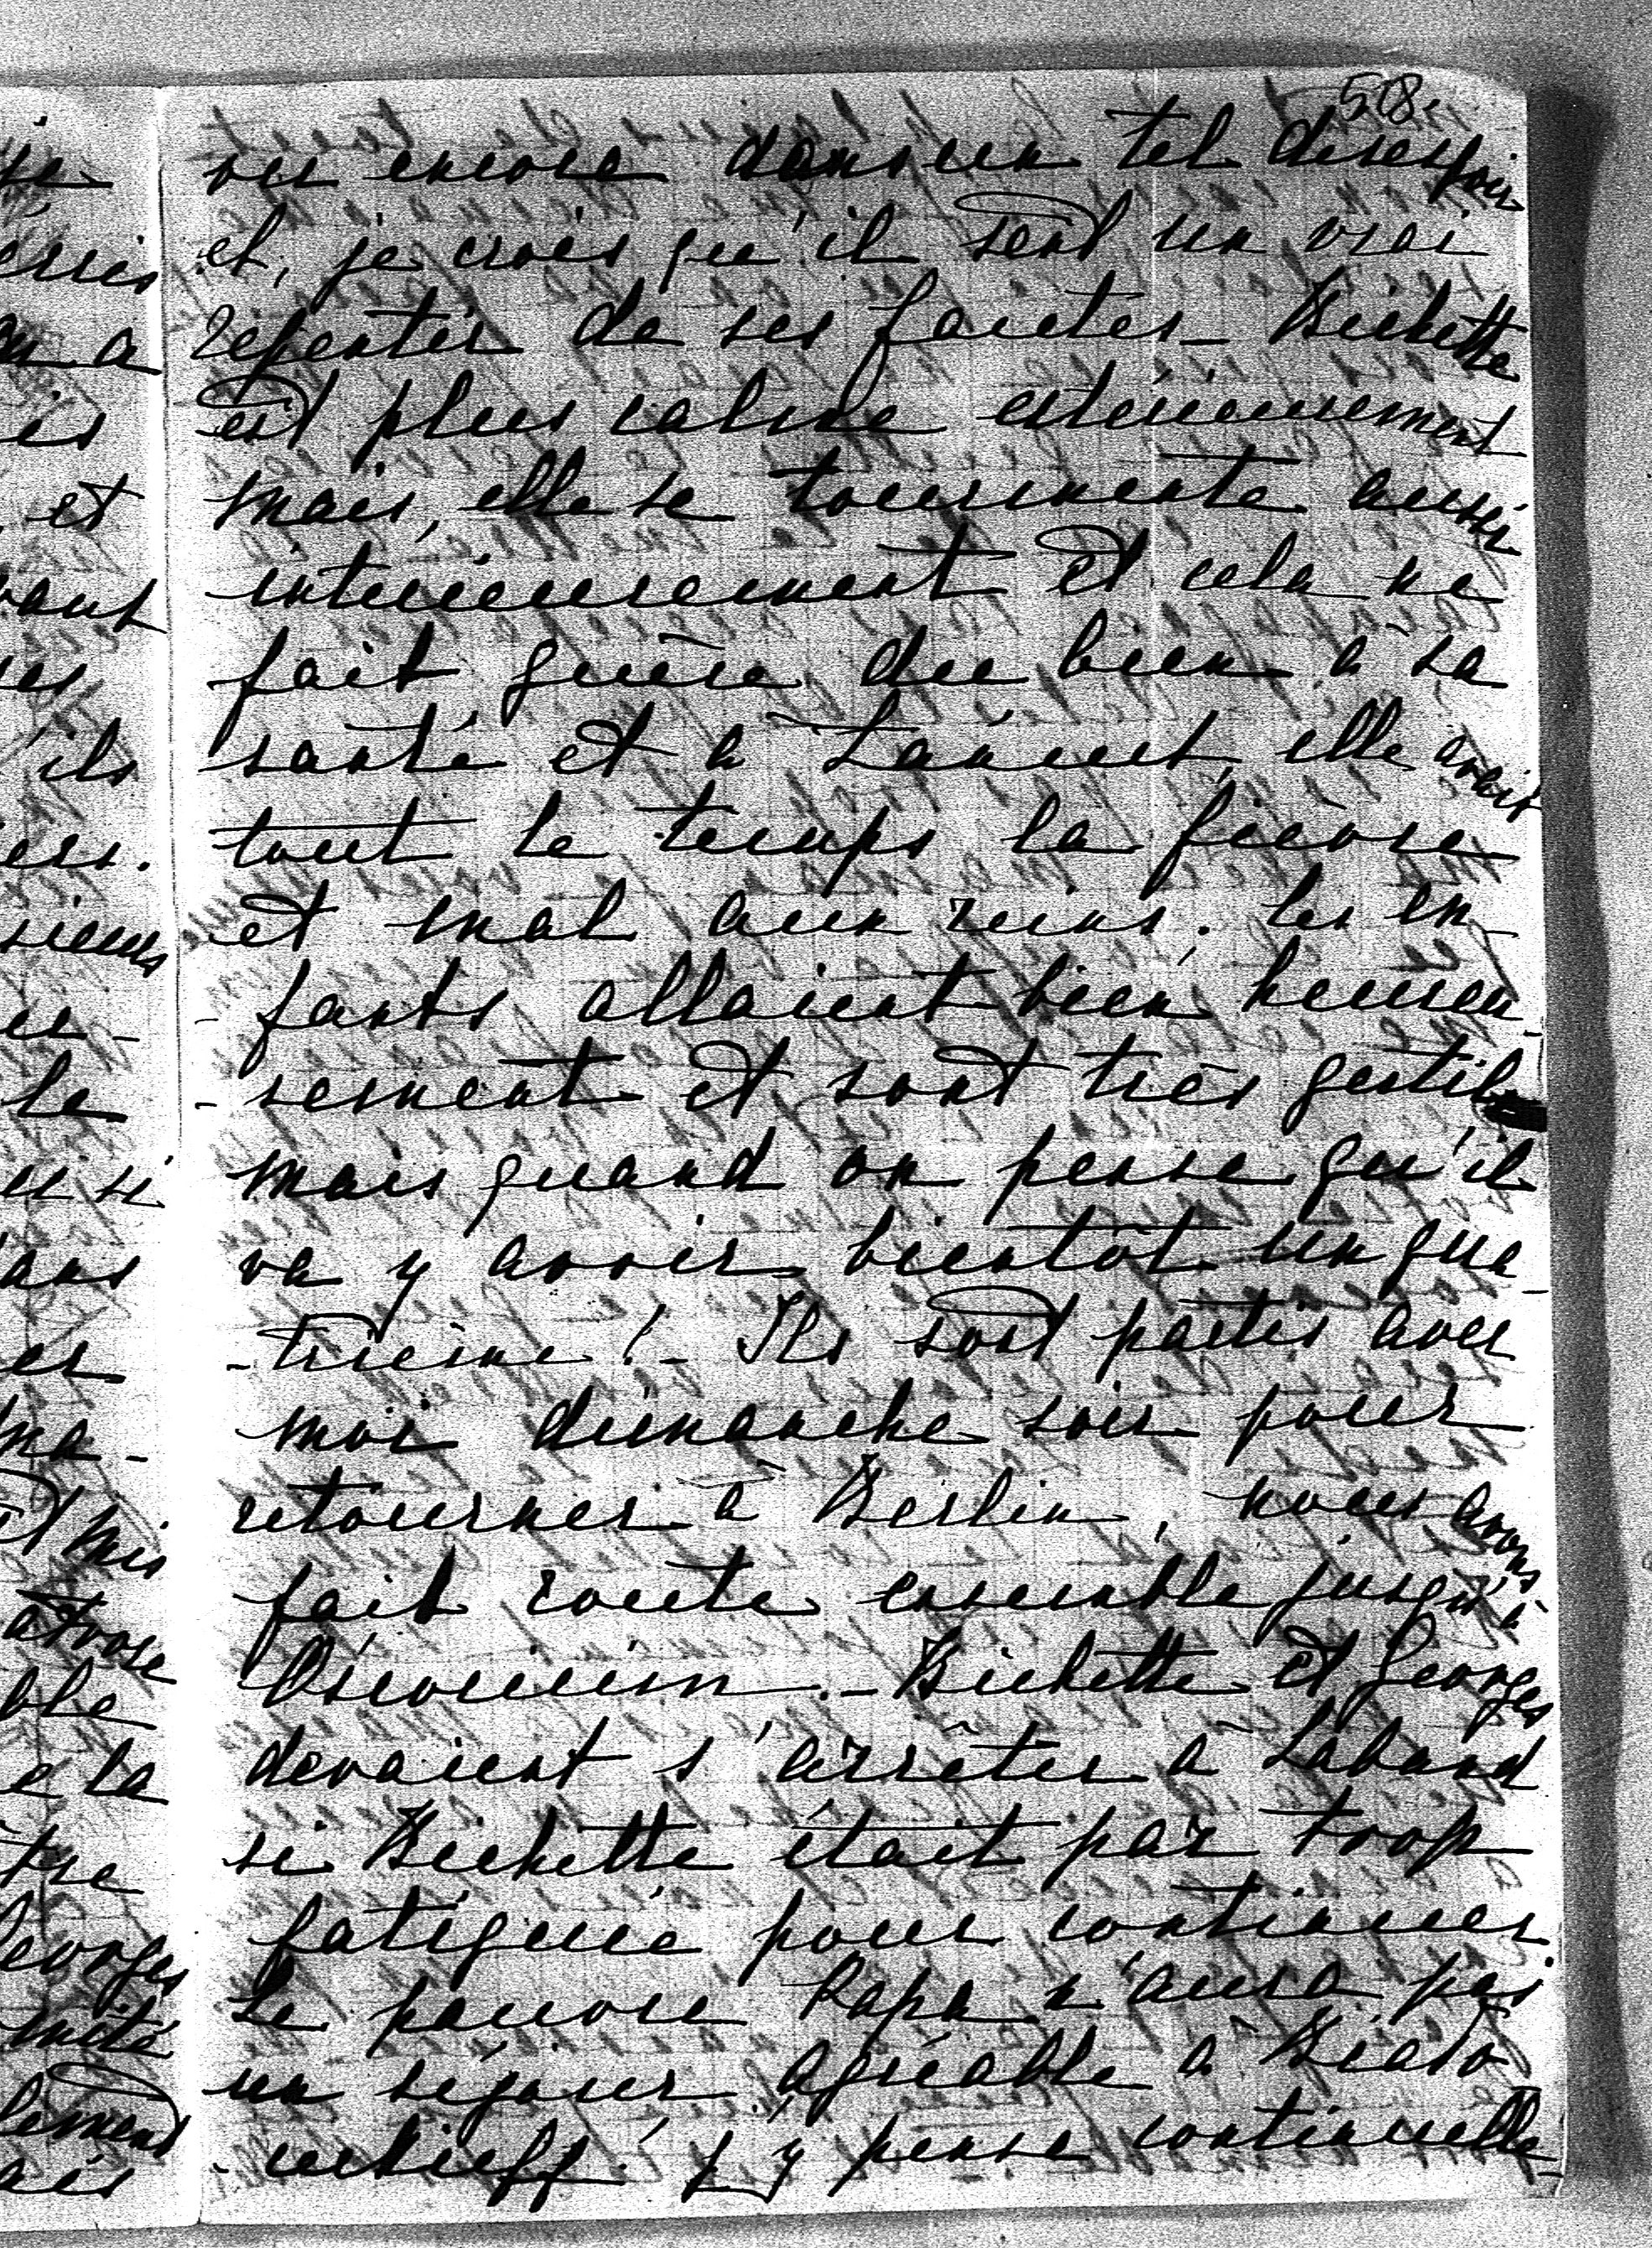 518.
vu encore dans un tel desespoir
et, je crois qu'il sent un vrai
repentir de ses fautes_ Bichette
est plus calme extérieurement
mais, elle se tourmente aussi
intérieurement et cela ne
fait guère du bien à sa
santé et à Łańcut, elle avait
tout le temps la fièvre
et mal aux reins. Les en-
-fants allaient bien heureu-
-sement et sont très gentils
mais quand on pense qu'il
va y avoir bientôt un qua-
-trième !- Ils sont partis avec
moi dimanche soir pour
retourner à Berlin, nous avons
fait route ensemble jusqu'à
Oświęcim.- Bichette et Georges
devaient s'arrêter à Laband
si Bichette était par trop
fatiguée pour continuer.
Le pauvre Papa n'aura pas
un séjour agréable à Biało-
J'y pense continuelle-
se
on a
et
vant
'ils
ers.
le
ans
Georges
e la
ble